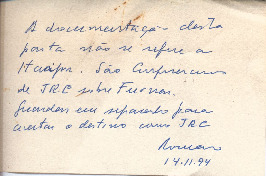 A documentação desta
pasta não se refere a
Itaipu. São
de JRC sobre Furnas.
Guardar em separado para
o destino com JRC
14.11.94